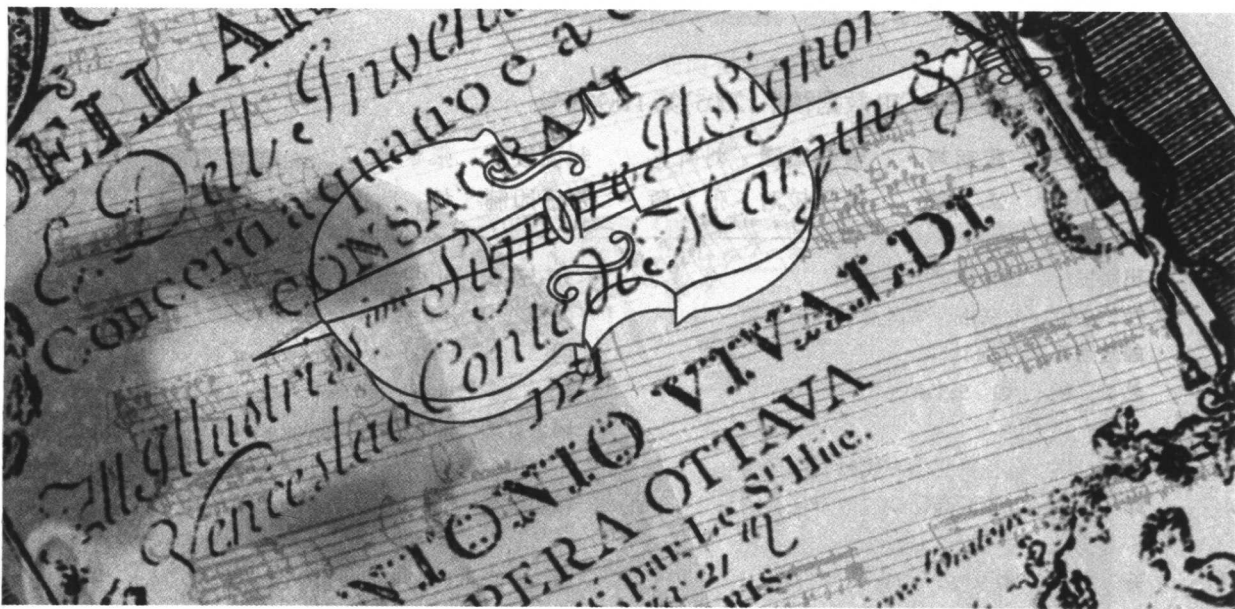 DELL AR
E Dell' Inven
Concerti a quatro e a
CONSACRATI
All Illustriss.imo Signore, Il Signor
Venceslao Conte de Marzin &
NTONIO VIVALDI
PERA OTTAVA
par Le Sr. Hüe.
21
RIS.
l'oratoire